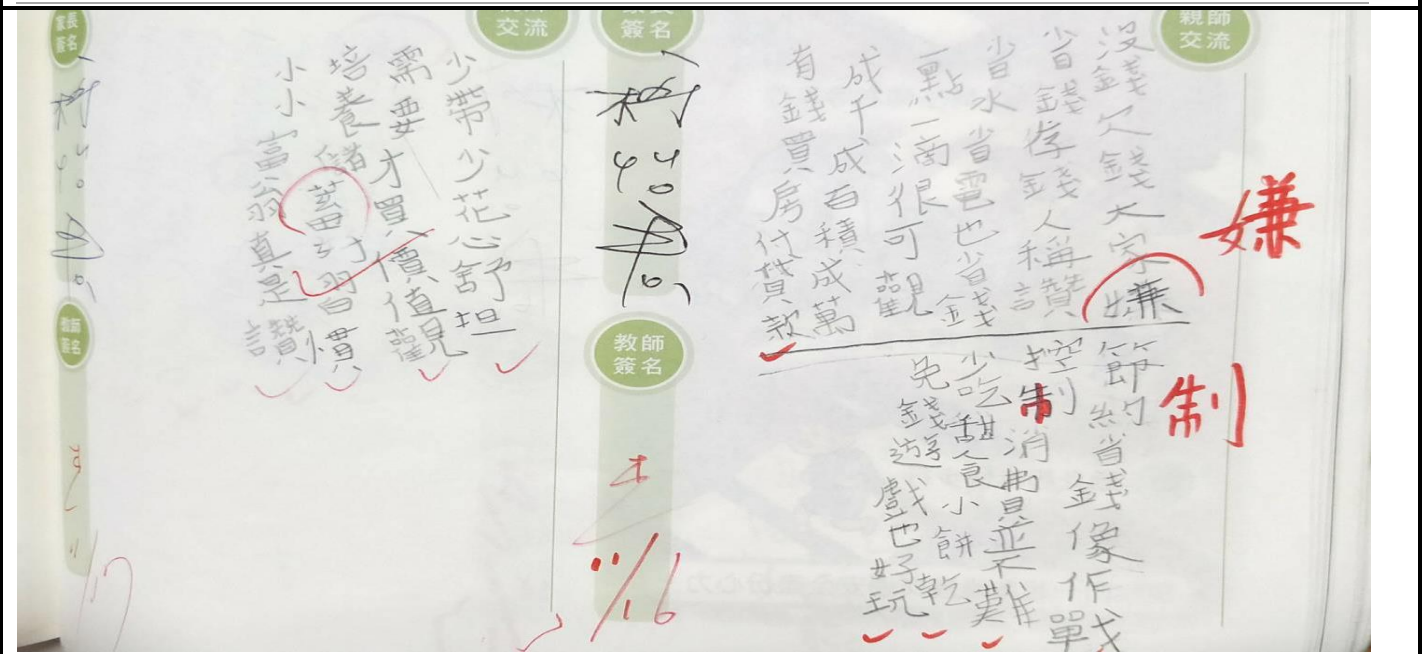 親師
交流
沒錢欠錢大家嫌
嫌
省錢存錢人稱讚
省水省電也省錢
一點一滴很可觀
成千成百積成萬
有錢買房付貸款
節約省錢像作戰
制
控制消費並不難
少吃甜食小餅乾
免錢遊戲也好玩
簽名
教師
簽名
11/16
交流
少帶少花心舒坦
需要才買價值觀
培養儲蓄好習慣
小小富翁真是讚
家長
簽名
教師
簽名